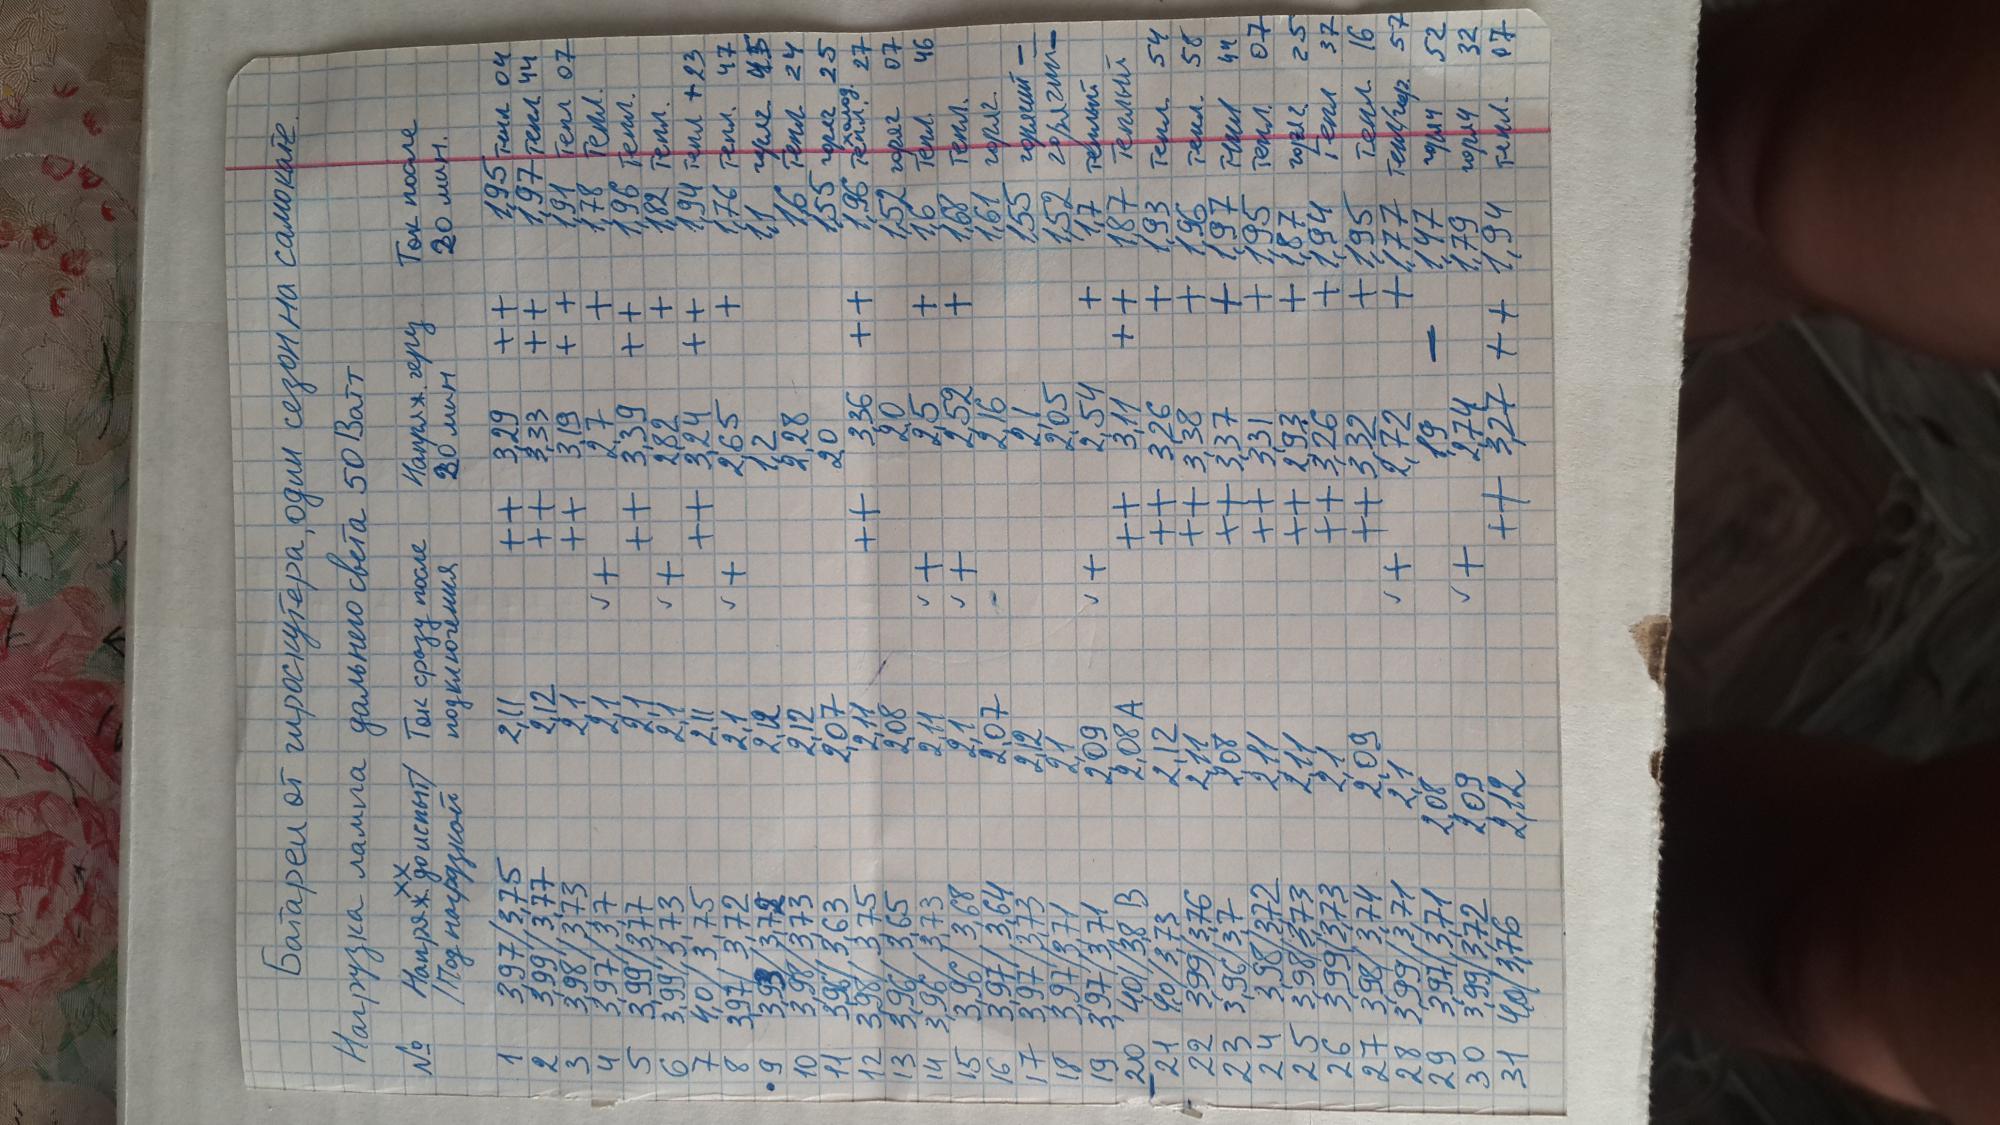 Батареи от гироскутера, один сезон на самокате.
Нагрузка лампа дальнего света 50 Ватт
№ Напряж. хх до испыт/ Ток сразу после Напряж. через Ток после
/Под нагрузкой подключения 20 мин 20 мин.
1 3,97/3,75 2,11 ++ 3,29 ++ 1,95 тепл 04
2 3,99/3,77 2,12 ++ 3,33 ++ 1,97 тепл 44
3 3,98/3,73 2,1 ++ 3,19 ++ 1,91 тепл 07
4 3,97/3,7 2,1 ✓+ 2,7 + 1,78 тепл.
5 3,99/3,77 2,1 ++ 3,39 ++ 1,96 тепл.
6 3,99/3,73 2,1 ✓+ 2,82 + 1,82 тепл.
7 4,0/3,75 2,11 ++ 3,24 ++ 1,94 тепл +23
8 3,97/3,72 2,1 ✓+ 2,65 + 1,76 тепл. 47
9 3,93/3,72 2,12 1,2 1,1
10 3,98/3,73 2,12 2,28 1,6 тепл 24
11 3,96/3,63 2,07 2,0 1,55 горяч 25
12 3,98/3,75 2,11 ++ 3,36 ++ 1,96 тепл. холод 27
13 3,96/3,65 2,08 2,0 1,52 горяч 07
14 3,96/3,73 2,11 ✓+ 2,5 + 1,6 тепл. 46
15 3,96/3,68 2,1 ✓+ 2,52 + 1,68 тепл.
16 3,97/3,64 2,07 2,16 1,61 горяч.
17 3,97/3,73 2,12 2,1 1,55 горячий —
18 3,97/3,71 2,1 2,05 1,52 горячий —
19 3,97/3,71 2,09 ✓+ 2,54 + 1,7 теплый
20 4,0/3,8 В 2,08 А ++ 3,11 ++ 1,87 теплый
21 4,0/3,73 2,12 ++ 3,26 + 1,93 тепл. 54
22 3,99/3,76 2,11 ++ 3,38 + 1,96 тепл. 58
23 3,96/3,7 2,08 ++ 3,37 + 1,97 тепл 44
24 3,98/3,72 2,11 ++ 3,31 + 1,95 тепл. 07
25 3,98/3,73 2,11 ++ 2,93 + 1,87 горяч. 25
26 3,99/3,73 2,1 ++ 3,26 + 1,94 тепл 37
27 3,98/3,74 2,09 ++ 3,32 + 1,95 тепл. 16
28 3,99/3,71 2,1 ✓+ 2,72 + 1,77 тепл/гор. 57
29 3,97/3,71 2,08 1,9 — 1,47 горяч 52
30 3,99/3,72 2,09 ✓+ 2,74 1,79 горяч 32
31 4,0/3,76 2,12 ++ 3,27 ++ 1,94 тепл. 07